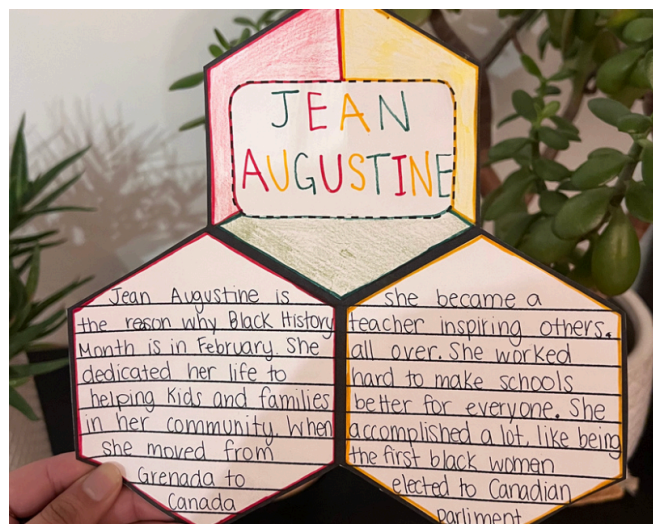 JEAN
AUGUSTINE
Jean Augustine is
the reson why Black History
Month is in February. She
dedicated her life to
helping kids and families
in her community. When
she moved from
Grenada to
Canada
she became a
teacher inspiring others.
all over. She worked
hard to make schools
better for everyone. She
accomplished a lot, like being
the first black women
elected to Canadian
parliment